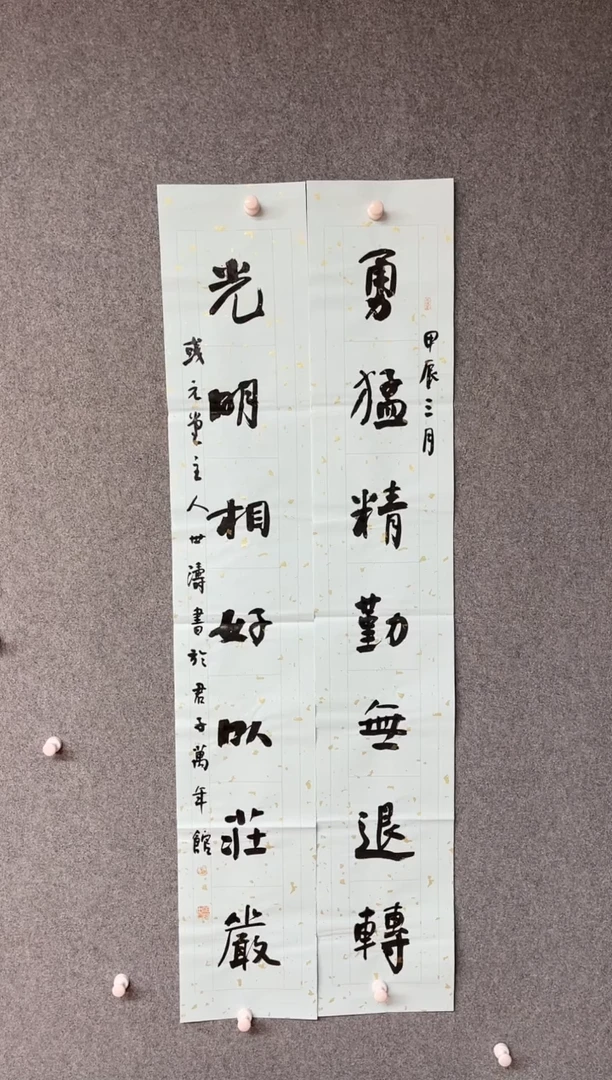 甲辰三月
勇猛精勤無退轉
光明相好以莊嚴
或元堂主人世濤書於君子萬年館